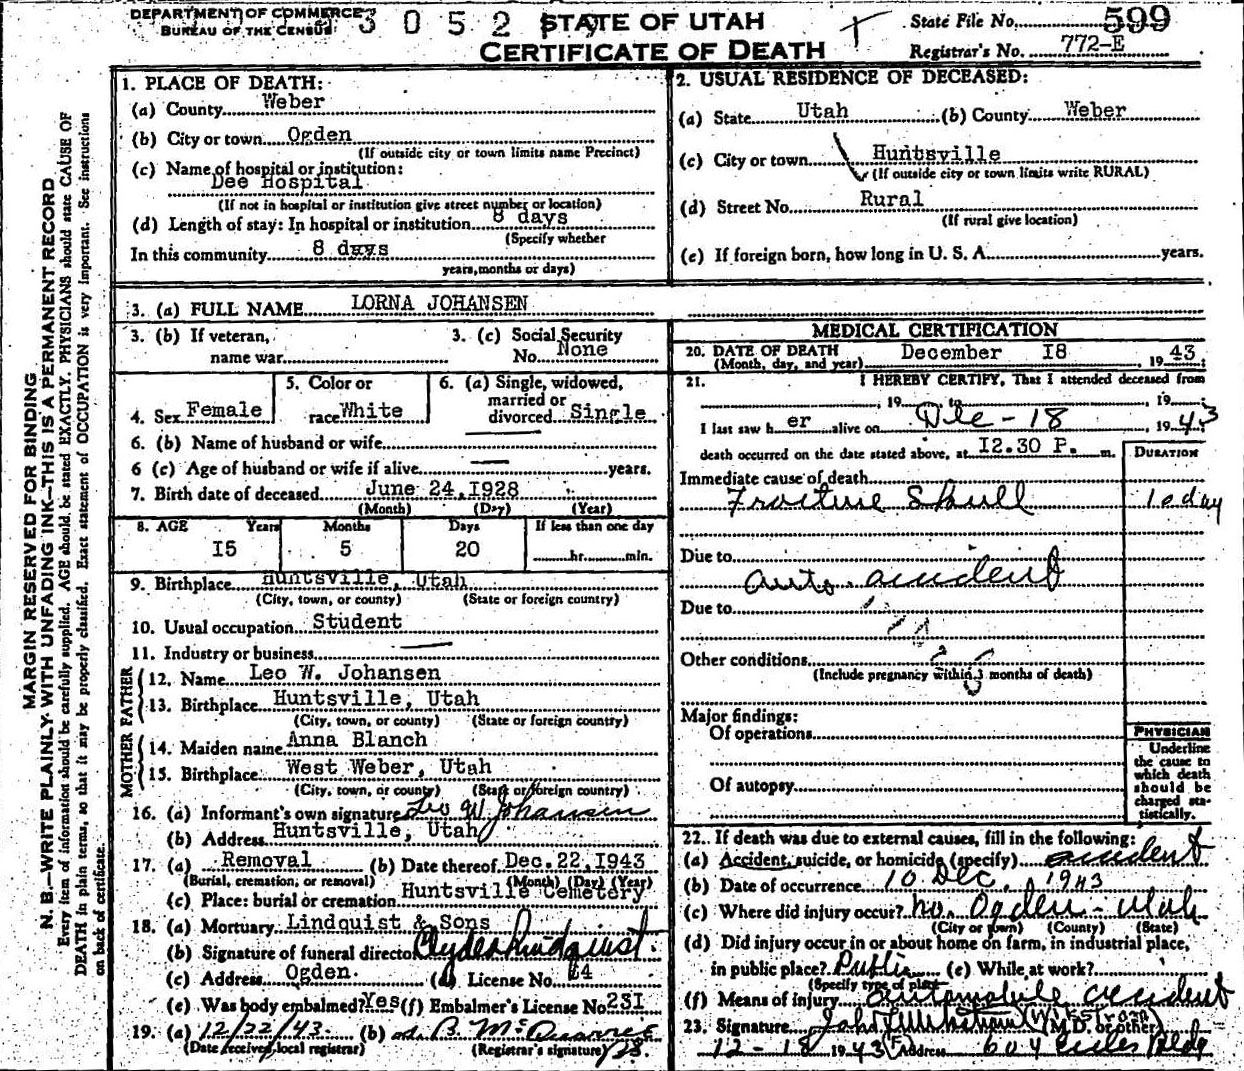 DEPARTMENT OF COMMERCE
BUREAU OF THE CENSUS
3 0 5 2
STATE OF UTAH
CERTIFICATE OF DEATH
State File No. 599
Registrar's No. 772-E
MARGIN RESERVED FOR BINDING
N. B.—WRITE PLAINLY, WITH UNFADING INK—THIS IS A PERMANENT RECORD
Every item of information should be carefully supplied. AGE should be stated EXACTLY. PHYSICIANS should state CAUSE OF
DEATH in plain terms, so that it may be properly classified. Exact statement of OCCUPATION is very important. See instructions
on back of certificate.
1. PLACE OF DEATH:
(a) County Weber
(b) City or town Ogden
(If outside city or town limits name Precinct)
(c) Name of hospital or institution:
Dee Hospital
(If not in hospital or institution give street number or location)
(d) Length of stay: In hospital or institution 8 days
(Specify whether
In this community 8 days
years, months or days)
2. USUAL RESIDENCE OF DECEASED:
(a) State Utah (b) County Weber
(c) City or town Huntsville
(If outside city or town limits write RURAL)
(d) Street No. Rural
(If rural give location)
(e) If foreign born, how long in U. S. A. years.
3. (a) FULL NAME LORNA JOHANSEN
3. (b) If veteran,
name war
3. (c) Social Security
No. None
4. Sex Female
5. Color or
race White
6. (a) Single, widowed,
married or
divorced Single
6. (b) Name of husband or wife
6 (c) Age of husband or wife if alive years.
7. Birth date of deceased June 24, 1928
(Month) (Day) (Year)
8. AGE Years Months Days If less than one day
15 5 20 hr. min.
9. Birthplace Huntsville, Utah
(City, town, or county) (State or foreign country)
10. Usual occupation Student
11. Industry or business
FATHER
12. Name Leo W. Johansen
13. Birthplace Huntsville, Utah
(City, town, or county) (State or foreign country)
MOTHER
14. Maiden name Anna Blanch
15. Birthplace West Weber, Utah
(City, town, or county) (State or foreign country)
16. (a) Informant's own signature Leo W Johansen
(b) Address Huntsville, Utah
17. (a) Removal (b) Date thereof Dec. 22, 1943
(Burial, cremation, or removal) (Month) (Day) (Year)
(c) Place: burial or cremation Huntsville Cemetery
18. (a) Mortuary Lindquist & Sons
(b) Signature of funeral director Clyde Lindquist
(c) Address Ogden (d) License No. 64
(e) Was body embalmed? Yes (f) Embalmer's License No. 231
19. (a) 12/22/43 (b)
(Date received local registrar) (Registrar's signature)
MEDICAL CERTIFICATION
20. DATE OF DEATH December 18 1943
(Month, day, and year)
21. I HEREBY CERTIFY, That I attended deceased from
, 19 to , 19
I last saw her alive on Dec - 18, 1943
death occurred on the date stated above, at 12.30 P. m.
DURATION
Immediate cause of death
Fracture Skull 10 day
Due to
auto accident
Due to
Other conditions
(Include pregnancy within 3 months of death)
Major findings:
Of operations
Of autopsy
PHYSICIAN
Underline
the cause to
which death
should be
charged sta-
tistically.
22. If death was due to external causes, fill in the following:
(a) Accident, suicide, or homicide (specify) accident
(b) Date of occurrence 10 Dec. 1943
(c) Where did injury occur? No. Ogden - Utah
(City or town) (County) (State)
(d) Did injury occur in or about home on farm, in industrial place,
in public place? Public (e) While at work?
(Specify type of place)
(f) Means of injury automobile accident
23. Signature (Wikstrom) M.D. or other)
12-18 1943 Address 604 Eccles Bldg